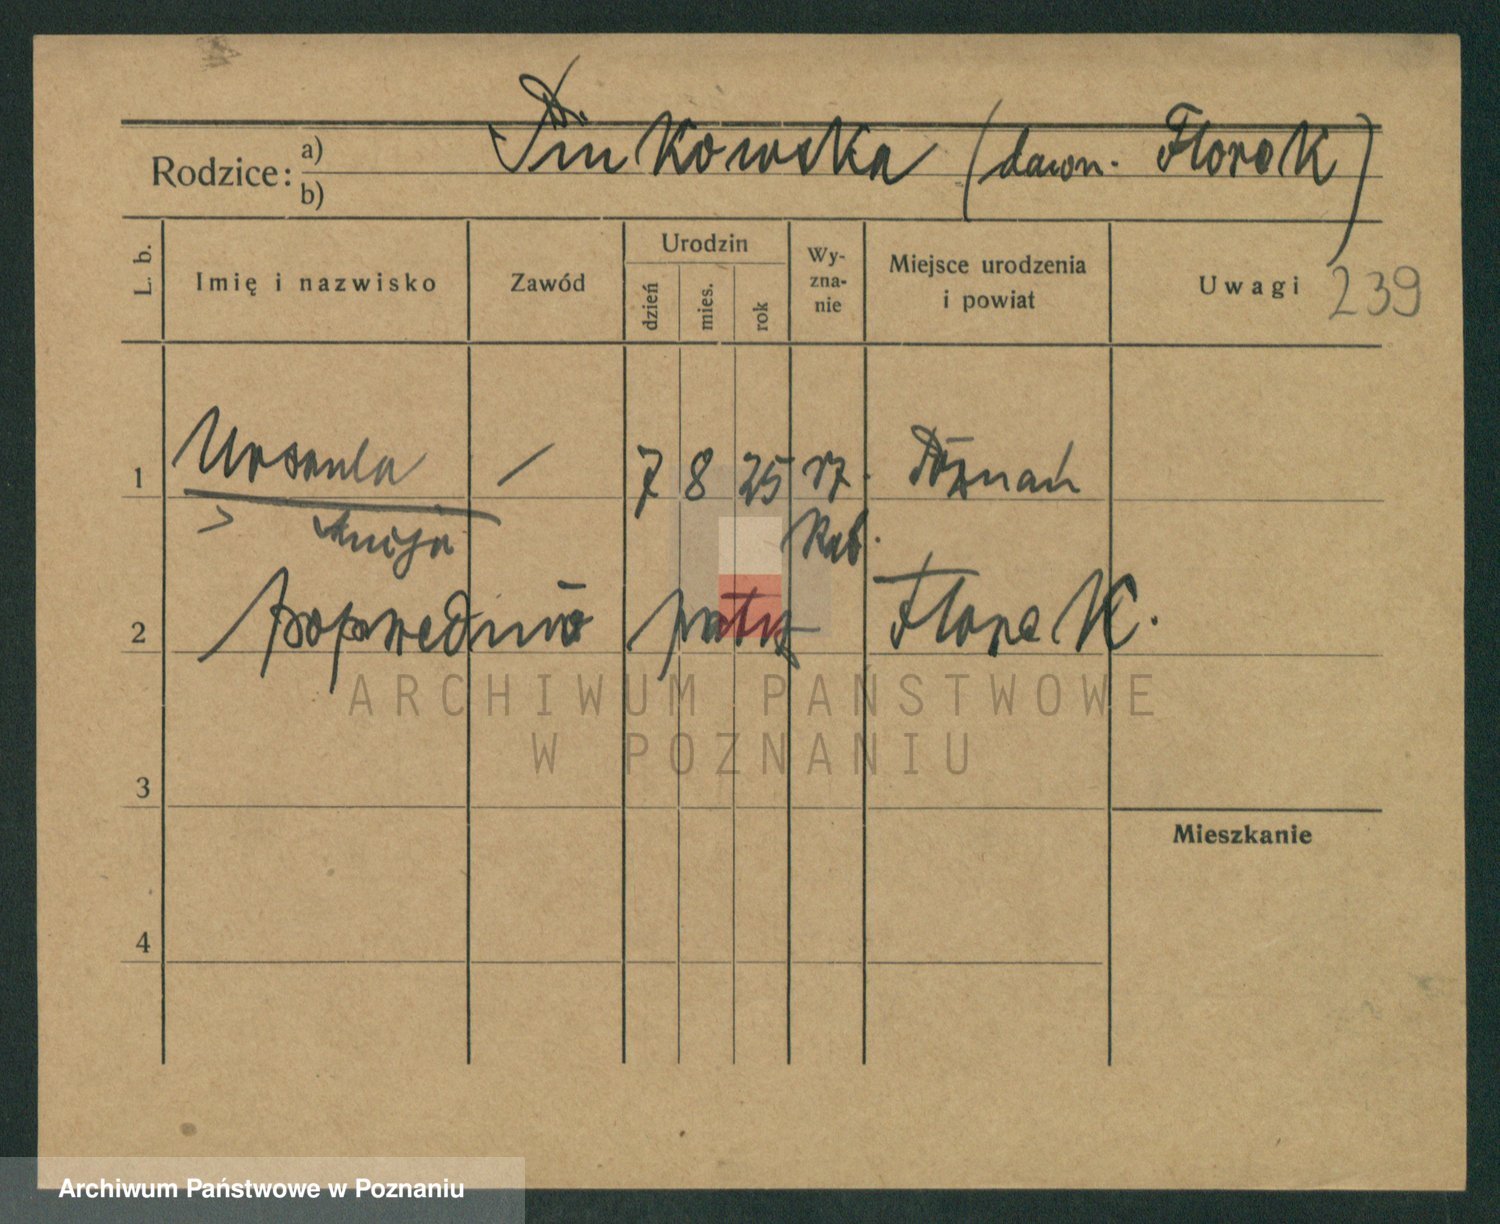 Rodzice: a) b)
Pinkowska (dawn. Florek)
L. b.
Imię i nazwisko
Zawód
Urodzin
dzień
mies.
rok
Wy-
zna-
nie
Miejsce urodzenia
i powiat
Uwagi
239
1 Urszula / 7 8 25 rz. Poznań
kat.
2 poprzednio patrz Florek.
3
Mieszkanie
4
ARCHIWUM PAŃSTWOWE
W POZNANIU
Archiwum Państwowe w Poznaniu